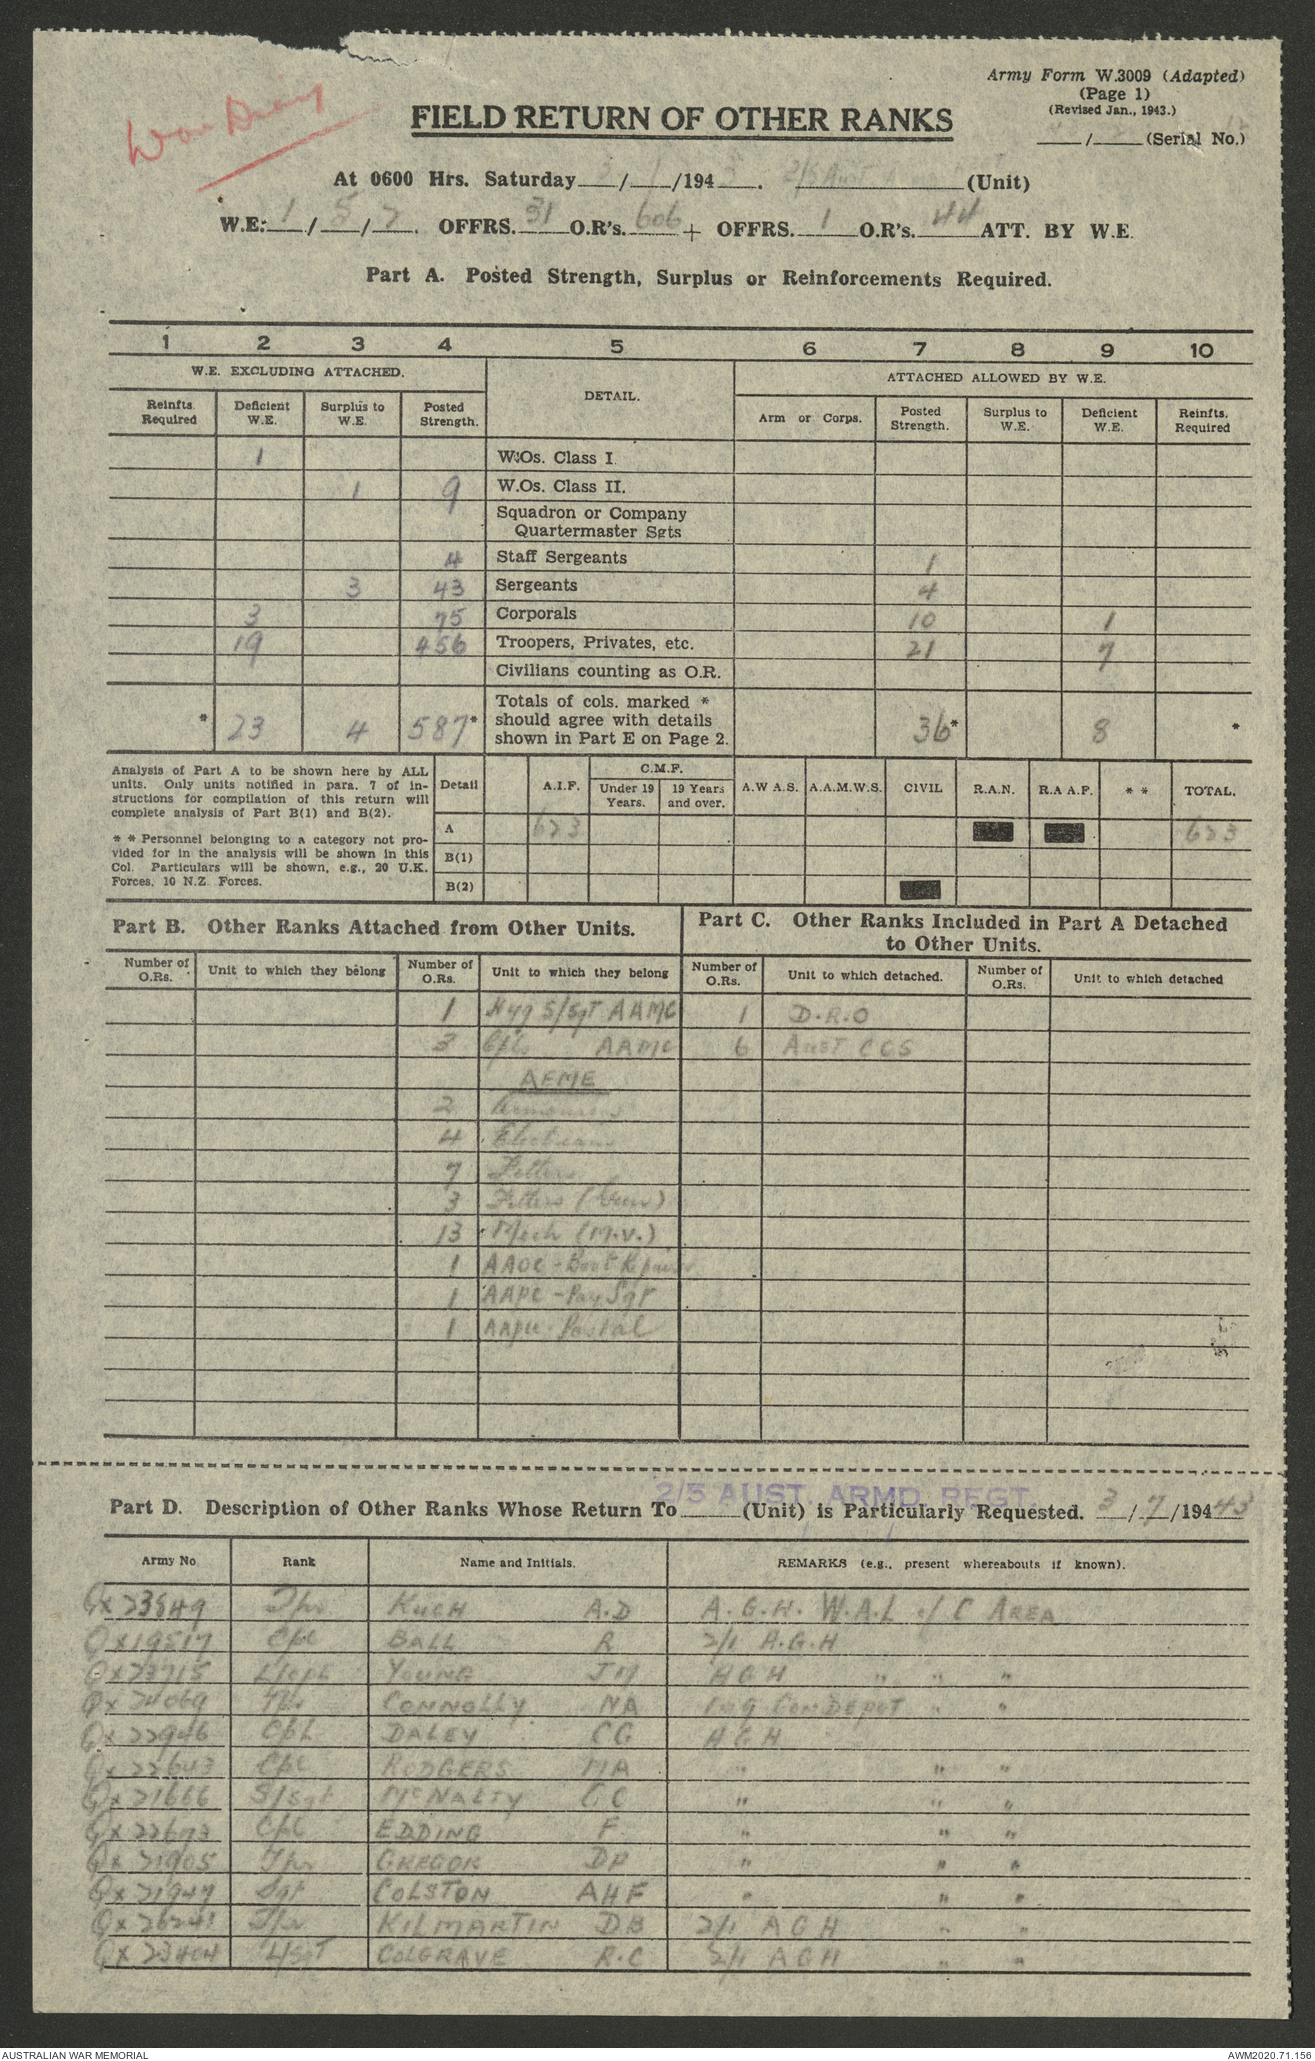 War Diary
Army Form W.3009 (Adapted)
(Page 1)
(Revised Jan., 1943.)
/ (Serial No.)
FIELD RETURN OF OTHER RANKS
At 0600 Hrs. Saturday 3 / /194 3. 2/5 Aust (Unit)
W.E: 1 / 5 / 2. OFFRS. 31 O.R's. 606 + OFFRS. 1 O.R's. 44 ATT. BY W.E.
Part A. Posted Strength, Surplus or Reinforcements Required.
1 2 3 4 5 6 7 8 9 10
W.E. EXCLUDING ATTACHED. DETAIL. ATTACHED ALLOWED BY W.E.
Reinfts. Required Deficient W.E. Surplus to W.E. Posted Strength. Arm or Corps. Posted Strength. Surplus to W.E. Deficient W.E. Reinfts. Required
1 W.Os. Class I.
1 9 W.Os. Class II.
Squadron or Company
Quartermaster Sgts
4 Staff Sergeants 1
3 43 Sergeants 4
3 75 Corporals 10 1
19 456 Troopers, Privates, etc. 21 7
Civilians counting as O.R.
Totals of cols. marked *
should agree with details
* 23 4 587* shown in Part E on Page 2. 36* 8 *
Analysis of Part A to be shown here by ALL
units. Only units notified in para. 7 of in-
structions for compilation of this return will
complete analysis of Part B(1) and B(2).
* * Personnel belonging to a category not pro-
vided for in the analysis will be shown in this
Col. Particulars will be shown, e.g., 20 U.K.
Forces, 10 N.Z. Forces.
Detail A.I.F. C.M.F. Under 19 Years. 19 Years and over. A.W A.S. A.A.M.W.S. CIVIL R.A.N. R.A A.F. * * TOTAL.
A 623 623
B(1)
B(2)
Part B. Other Ranks Attached from Other Units.
Part C. Other Ranks Included in Part A Detached
to Other Units.
Number of O.Rs. Unit to which they belong Number of O.Rs. Unit to which they belong Number of O.Rs. Unit to which detached. Number of O.Rs. Unit to which detached
1 Hyg S/Sgt AAMC 1 D.R.O
3 Cpls AAMC 6 Aust CCS
AEME
2 Armourers
4 Electricians
7 Fitters
3 Fitters (Gun)
13 Mech (M.V.)
1 AAOC - Boot Repairer
1 AAPC - Pay Sgt
1 Postal
2/5 AUST ARMD REGT
Part D. Description of Other Ranks Whose Return To (Unit) is Particularly Requested. 3 / 7 /194 43
Army No Rank Name and Initials. REMARKS (e.g., present whereabouts if known).
Qx23549 Tpr KUCH A.D A.G.H. W.A.L of C AREA
Qx19517 Cpl BALL R 2/1 A.G.H
Qx23715 L/Cpl YOUNG JM AGH " " "
Qx24069 Tpr CONNOLLY NA 109 CON DEPOT " "
Qx22946 Cpl DALEY CG AGH
Qx22643 Cpl RODGERS MA " " "
Qx21666 S/Sgt McNALTY CC " " "
Qx22673 Cpl EDDING F " " "
Qx21905 Tpr GREGOR DP " " "
Qx21947 Sgt COLSTON AHF " " "
Qx26241 Tpr KILMARTIN DB 2/1 AGH " "
Qx23404 L/Sgt COLGRAVE R.C 2/1 AGH " "
AUSTRALIAN WAR MEMORIAL
AWM2020.71.156